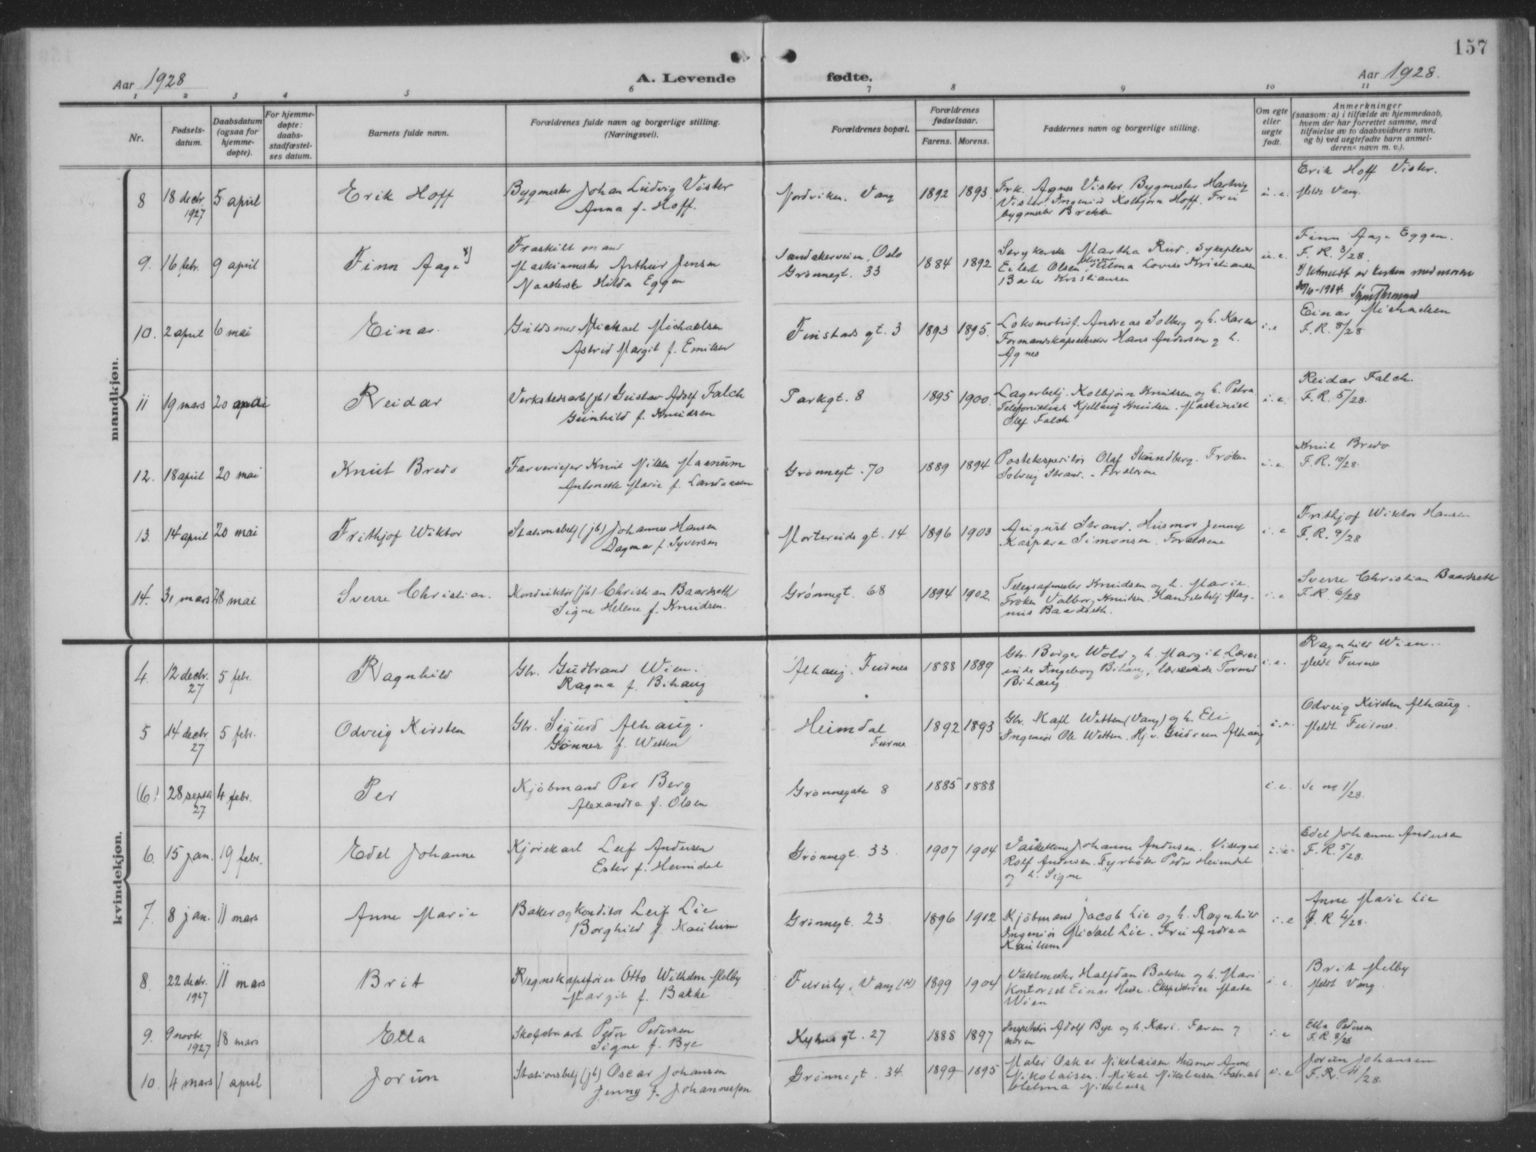 157
Aar 1928
A. Levende
fødte.
Aar 1928.
1 2 3 4 5 6 7 8 9 10 11
Nr.
Fødsels-
datum.
Daabsdatum
(ogsaa for
hjemme-
døpte).
For hjemme-
døpte:
daabs-
stadfæstel-
ses datum.
Barnets fulde navn.
Forældrenes fulde navn og borgerlige stilling.
(Næringsvei).
Forældrenes bopæl.
Forældrenes
fødselsaar.
Farens. Morens.
Faddernes navn og borgerlige stilling.
Om egte
eller
uegte
født.
Anmerkninger
(saasom: a) i tilfælde av hjemmedaab,
hvem der har forrettet samme, med
tilføielse av to daabsvidners navn,
og b) ved uegtefødte barn anmel-
derens navn m. v.).
mandkjøn.
8 18 decbr. 1927 5 april Erik Hoff
Bygmester Johan Ludvig Vister
Anna f. Hoff.
Nordviken. Vang 1892 1893
Frk. Agnes Vister. Bygmester Hartvig
Vister. Ingeniør Kolbjørn Hoff. Fru
bygmester Brekke
Erik Hoff Vister.
Meldt Vang.
9. 16 febr. 9 april Finn Aage
Fraskilt mand
Maskinmester Arthur Jensen
Hilda Eggen
Sandakerveien, Oslo
Grønnegt. 33
1884 1892
Martha Rud.
Eilert Olsen
Finn Aage Eggen.
F. R. 3/28.
Utmeldt av kirken med moren
10. 2 april 6 mai Einar
Guldsmed Mickael Michaelsen
Astrid Margit f. Emilsen
Finstads gt. 3 1893 1895. i.e
Lokomotivf. Andreas Solberg og h. Karen
Hans Andersen og h.
Agnes
Einar Michaelsen
F. R. 8/28.
11 19 mars 20 Reidar
Verkstedsarb (jb) Gustav Adolf Falch
Gunhild f. Knudsen
Parkgt. 8 1895 1900. i.e.
Lagerbetj. Kolbjørn Knudsen og h. Petra
Kjellaug Knudsen. Maskinist
Olaf Falch
Reidar Falch.
F. R. 5/28.
12. 18 april 20 mai Knut Bredo
Farveriejer Knut Nilsen Mamum
Antonette Marie f.
Grønnegt. 70 1889 1894 i.e.
Postekspeditør Olaf Strandberg. Frøken
Solveig Strand. - Forældrene
Knut Bredo
F. R. 10/28
13. 14 april 20 mai Frithjof Wiktor
Stationsbetj (jb) Johannes Hansen
Dagmar f. Syversen
gt. 14 1896 1903 i.e
August Strand. Husmor Jenny
Kaspara Simonsen. Forældrene
Frithjof Wiktor Hansen
F. R. 9/28
14. 31 mars 28 mai Sverre Christian.
Konduktør (jb) Christian Baardseth
Signe Helene f. Knudsen.
Grønnegt. 68 1894 1902. i.e
Telegrafmester Knudsen og h. Marie.
Frøken Valborg Knudsen. Handelsbetj. Mag-
nus Baardseth.
Sverre Christian Baardseth
F. R. 6/28
kvindekjøn.
4. 12 decbr. 27 5 febr. Ragnhild
Gbr. Gudbrand Wien.
Ragna f. Bihaug
Alhaug. Furnes 1888 1889 i.e.
Gbr. Birger Wold og h. Margit. Lærer-
inde Ingeborg Bihaug,
Bihaug
Ragnhild Wien.
Meldt Furnes
5 14 decbr. 27 5 febr. Odveig Kirsten
Gbr. Sigurd Alhaug.
Gønner f. Wetten
Heimdal
Furnes
1892 1893
Gbr. Wetten (Vang) og h. Eli
Ingeniør Ole Wetten. Gudrun Alhaug
Odveig Kirsten Alhaug.
Meldt Furnes.
(6) 28 septbr 27 4 febr. Per
Kjøbmand Per Berg
Alexandra f. Olsen
Grønnegate 8 1885 1888 i.e.
Se nr 1/28.
6. 15 jan. 19 febr. Edel Johanne
Kjørekarl Leif Andersen
Ester f. Heimdal
Grønnegt. 33. 1907 1904
Johanne Andersen.
Rolf Andersen. Fyrbøter Peder Heimdal
og h. Signe
Edel Johanne Andersen
F. R. 5/28.
7. 8 jan. 11 mars Anne Marie
Baker og konditor Leif Lie
Borghild f. Kaulum
Grønnegt. 23. 1896 1902 i.e
Kjøbmand Jacob Lie og h. Ragnhild
Ingeniør Michael Lie. Fru Andrea
Kaulum
Anne Marie Lie
F. R. 4/28.
8. 22 decbr. 1927 11 mars Brit
Regnskapsfører Otto Wilhelm Melby
Margit f. Bakke
Furuly, Vang (H) 1899 1904 i.e.
Halfdan Bakke og h. Mari
Kontorist Einar Hede. Marta
Wien
Brit Melby
Meldt Vang.
9. 9 novbr. 1927 18 mars Ella
Skofabr.arb Peder Pedersen
Signe f. Bye
gt. 27 1888 1897 i.e
Inspektør Adolf Bye og h. Kari. Faren og
moren
Ella Pedersen
F. R. 2/28
10. 4 mars 1 april Jorun
Stationsbetj (jb) Oscar Johansen
Jenny f. Johannessen
Grønnegt. 34. 1899 1895 i.e
Maler Oskar Nikolaisen. Husmor Anne
Nikolaisen. Mikal Nikolaisen.
Helma Nikolaise
Jorun Johansen
F. R. 11/28.